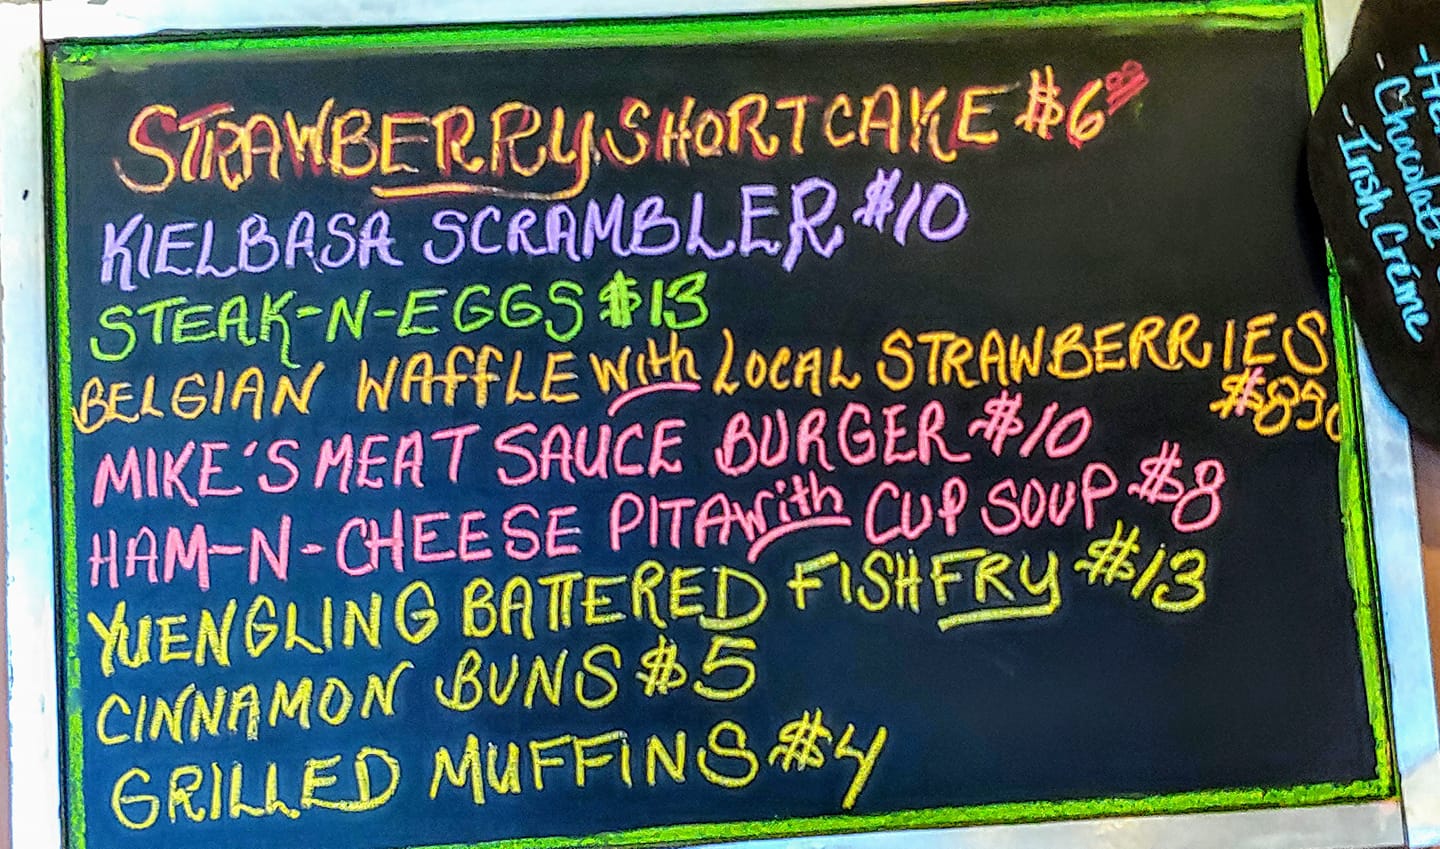 STRAWBERRY SHORTCAKE $6.00
KIELBASA SCRAMBLER $10
STEAK-N-EGGS $13
BELGIAN WAFFLE with LOCAL STRAWBERRIES
$8.50
MIKE'S MEAT SAUCE BURGER $10
HAM-N-CHEESE PITA with CUP SOUP $8
YUENGLING BATTERED FISH FRY $13
CINNAMON BUNS $5
GRILLED MUFFINS $4
- Chocolate
- Irish Créme